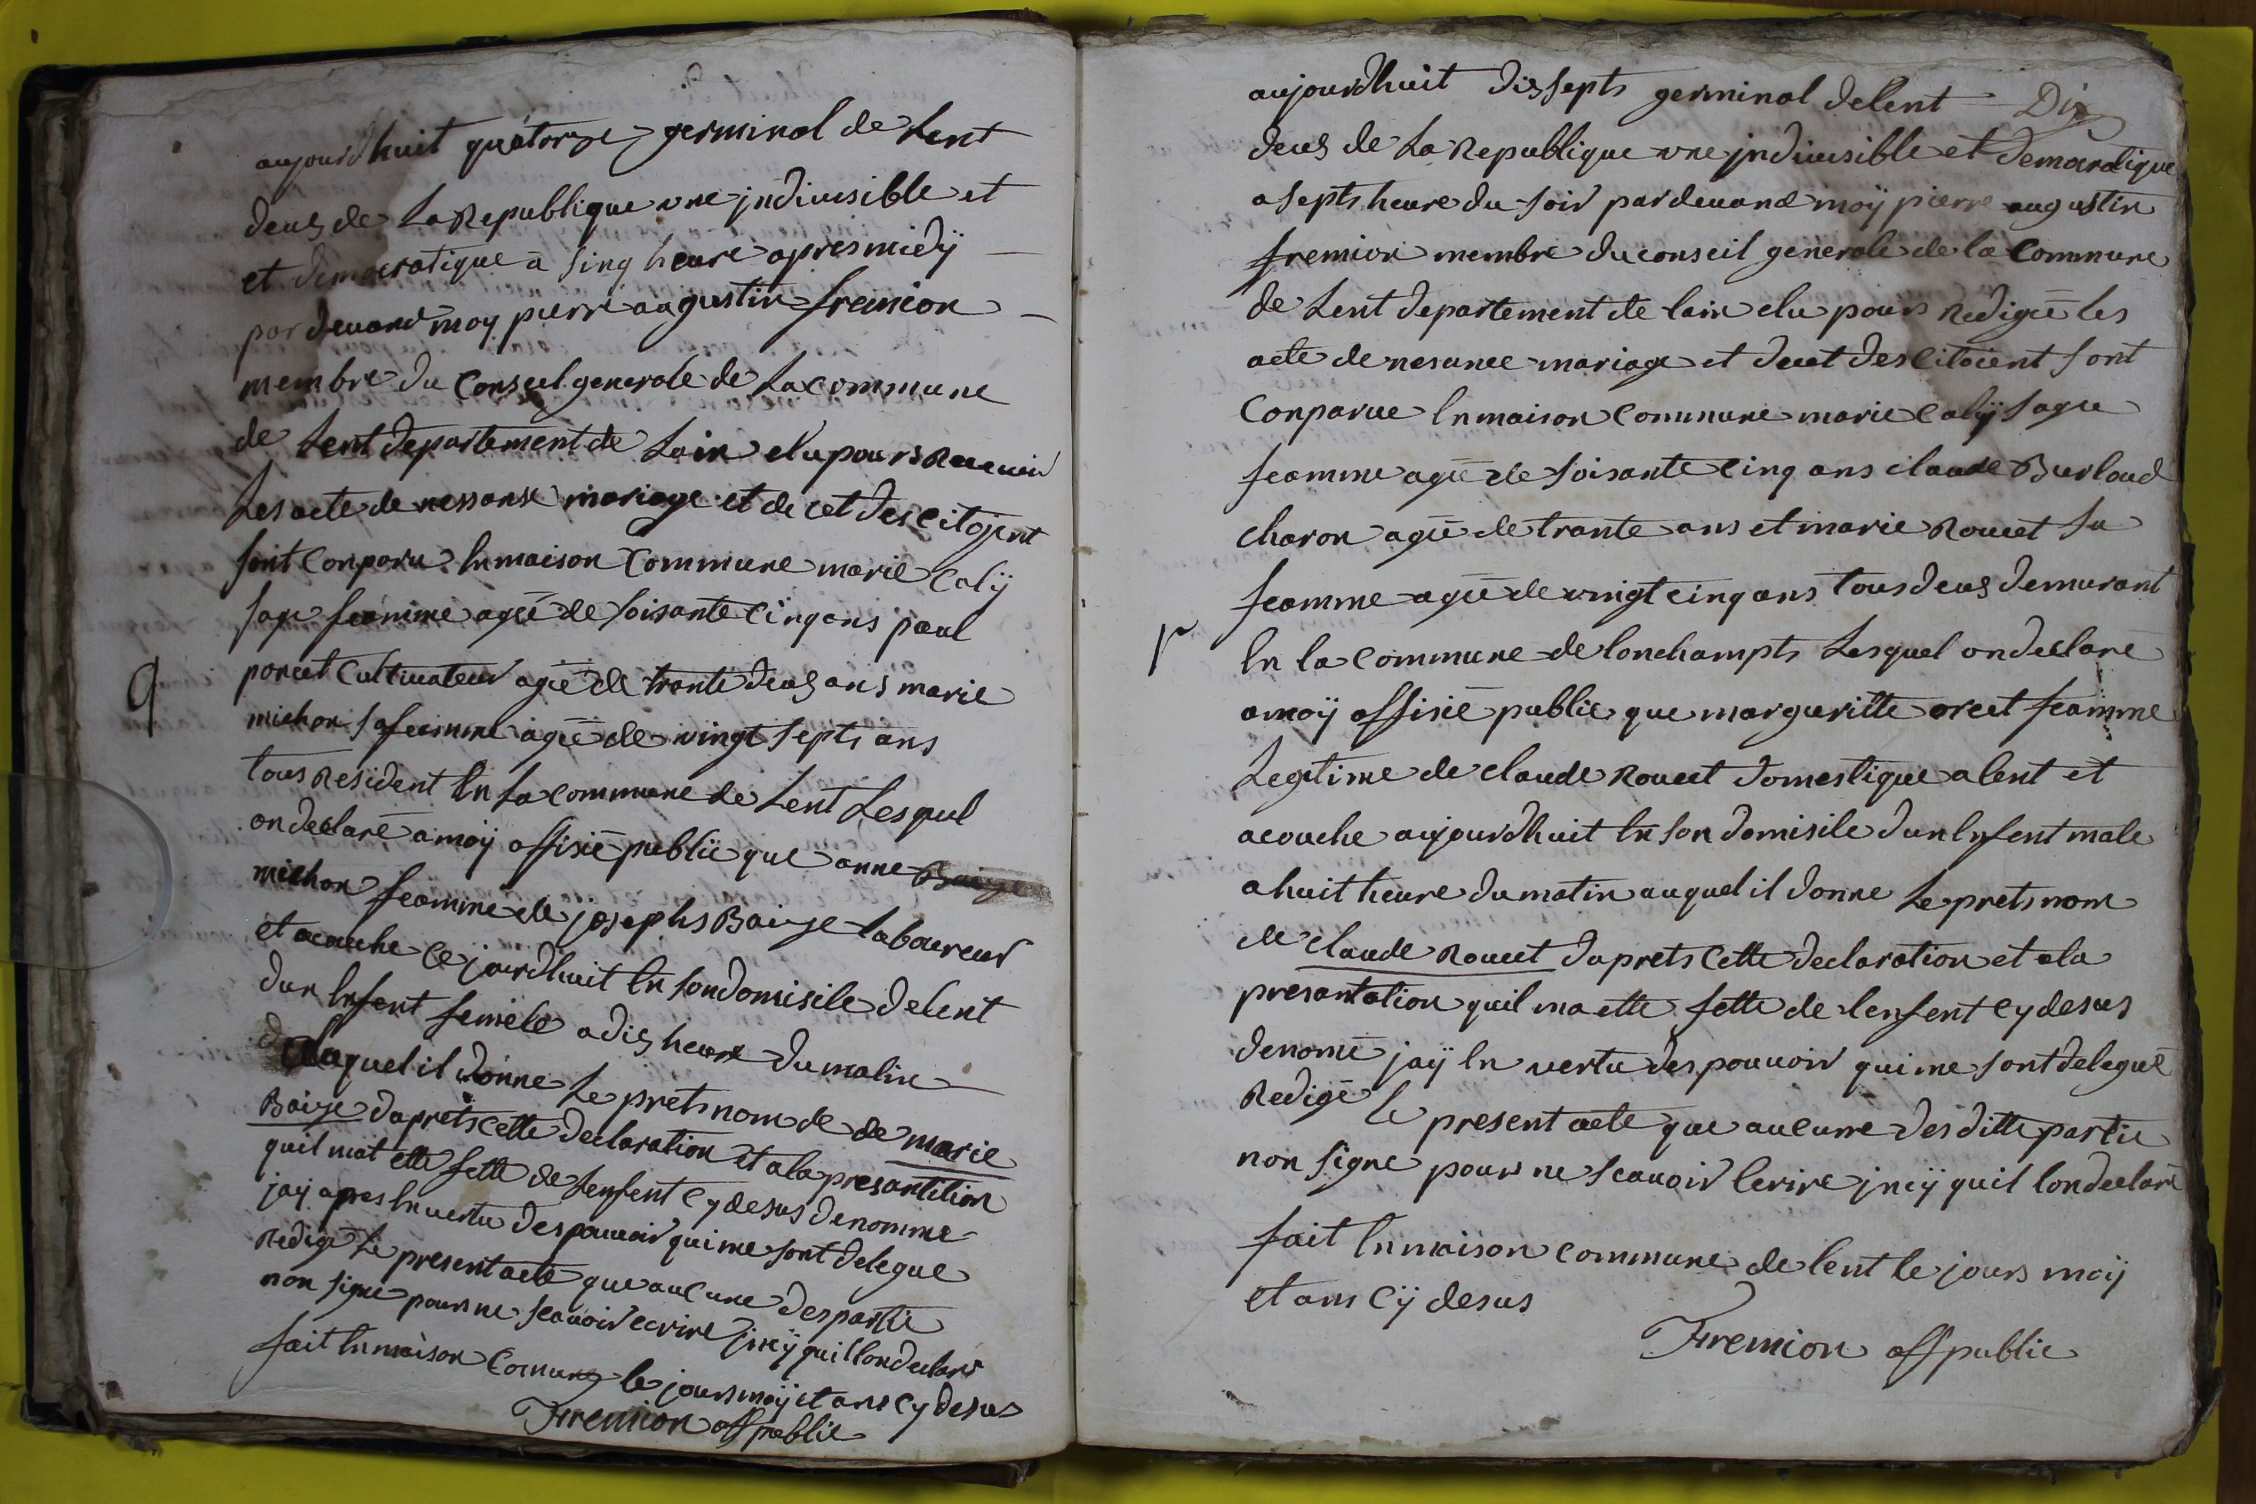 aujourdhuit quatorze germinal de Lent
deus de La Republique une jndiuisible et
et democratique a sinq heure apres midÿ
par deuand moy pierre augustin fremion
membre du Conseil generale de La commune
de Lent departement de Lain elu pours Receuoir
Les acte de nessanse mariage et decet des Citojent
sont Conparu En maison Commune marie Calÿ
sage feamme agee de soisante Cinq ans paul
porcet Cultiuateur agee de trante deus ans marie
michon sa feamme agee de vingt septs ans
tous Resident En La commune de Lent Lesquel
on declare a moÿ offisie public que anne
michon feamme de josephs Baize laboureur
et acouche Ce jourdhuit En son domisile de lent
dun Enfent femele a dis heure du matin
a laquel il donne Le prets nom de de marie
Baize daprets cette declaration et a la presantition
quil mat ette fette de Lenfent Cy desus denomme
jaÿ apres En vertu des pouuoir qui me sont delegue
Redige Le present acte que aucune des partie
non signe pours ne scauoir ecrire jncÿ quil lon declare
fait En maison Comune le jours moÿ et ans Cy desus
Fremion off public
9
aujourdhuit dis septs germinal de lent
Dix
deus de La Republique une jndiuisible et democratique
a septs heure du soir par deuand moÿ pierre augustin
fremion membre du conseil generale de la Commune
de Lent departement de lain elu pours Redigee les
acte de nesance mariage et decet des Citoient sont
Conparue En maison Commune marie Calÿ sage
feamme agee de soisante Cinq ans claude Burloud
charon agee de trante ans et marie Rouet sa
feamme agee de vingt cinq ans tous deus demurant
En la Commune de lonchampts Lesquel on declare
a moÿ offisie public que marguritte orcet feamme
Legitime de claude Rouet domestique a lent et
acouche aujourdhuit En son domisile dun Enfent male
a huit heure du matin auquel il donne Le prets nom
de claude Rouet daprets Cette declaration et a la
presantation quil ma ette fette de lenfent Cy desus
denome jaÿ En vertu des pouuoir qui me sont delegue
Redige Le present acte que aucune des ditte partie
non signe pours ne scauoir Ecrire jncÿ quil lon declare
fait En maison Commune de lent le jours moÿ
et ans Cÿ desus
Fremion off public